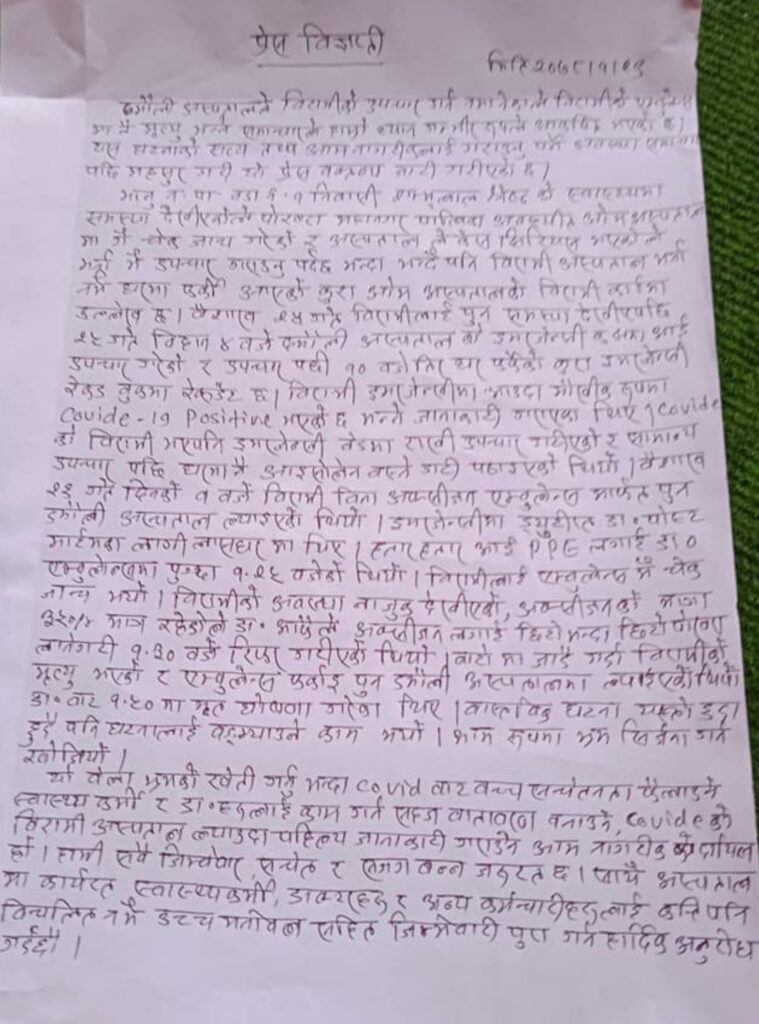 प्रेस विज्ञप्ती
मिति २०७८।१।२९
दमौली अस्पतालले विरामीको उपचार गर्न नमानेकाले विरामीको एम्बुलेन्स
मा नै मृत्यु भन्ने समाचारले हाम्रो ध्यान गम्भीर रुपले आकर्षित भएको छ।
यस घटनाको सत्य तथ्य आम नागरीकलाई गराउनु पर्ने अवस्था
पछि महसुस गरी यो प्रेस वक्तव्य जारी गरीएको छ।
भानु न पा वडा नं. १ निवासी श्रेष्ठ को स्वास्थ्यमा
समस्या देखीएकोले पोखरा महानगर पालिका अवस्थीत ओम अस्पताल
मा नै चेक जाच गरेको र अस्पताल ले केस क्रिटिकल भएकोले
भर्ना नै उपचार गराउनु पर्दछ भन्दा भन्दै पनि विरामी अस्पताल भर्ना
नभै घरमा फर्की आएको कुरा ओम अस्पतालको विरामी कार्डमा
उल्लेख छ। वैशाख २५ गते विरामीलाई पुन समस्या देखीएपछि
२५ गते विहान ४ वजे दमौली अस्पताल को इमरजेन्सी कक्षमा आई
उपचार गरेको र उपचार पछी १० वजे तिर घर फर्केको कुरा इमरजेन्सी
रेकर्ड वुकमा रेकर्डेट छ। विरामी इमरजेन्सीमा आउदा मौखीक रुपमा
Covide-19 Positive भएको छ भन्ने जानाकारी गराएका थिए। Covide
को विरामी भएपनि इमरजेन्सी वेडमा राखी उपचार गरीएको र सामान्य
उपचार पछि घरमा नै आइसोलेसन वस्ने गरी पठाइएको थियो। वैशाख
२६ गते दिनको १ वजे विरामी विना अक्सीजन एम्वुलेन्स मार्फत पुन
दमौली अस्पताल ल्याइएको थियो। इमरजेन्सीमा ड्युटीरत डा. पोष्ट
मार्टमका लागी लासघर मा थिए। हतार हतार आई PPE लगाई डा०
एम्वुलेन्समा पुग्दा १.२५ वजेको थियो। विरामीलाई एम्वुलेन्स मै चेक
जान्च भयो। विरामीको अवस्था नाजुक देखीएको, अक्सीजनको मात्रा
३५०/० मात्र रहेकोले डा० आफैले अक्सीजन लगाई छिटो भन्दा छिटो पोखरा
लानेगरी १.३० वजे रिफर गरीएको थियो। वाटो मा जादै गर्दा विरामीको
मृत्यु भएको र एम्वुलेन्स फर्काइ पुन दमौली अस्पतालमा ल्याईएको थियो
डा० वाट १.५० मा मृत घोषणा गरेका थिए। वास्तविक घटना यस्तो हुदा
हुदै पनि घटनालाई वङ्ग्याउने काम भयो। आम रुपमा भ्रम सिर्जना गर्न
खोजियो।
यो वेला भ्रमको खेती गर्नु भन्दा covid वाट वच्न सचेतनता फैलाउने
स्वास्थ्य कर्मी र डा. हरुलाई काम गर्न सहज वातावरण वनाउने, Covide को
विरामी अस्पताल ल्याउदा पहिल्यै जानाकारी गराउने आम नागरीक को दायित्व
हो। हामी सवै जिम्मेवार, सचेत र सजग वन्न जरुरत छ। साथै अस्पताल
मा कार्यरत स्वास्थ्यकर्मी, डाक्टरहरु र अन्य कर्मचारीहरुलाई कत्ति पनि
विचलित नभै उच्च मनोवल सहित जिम्मेवारी पुरा गर्न हार्दिक अनुरोध
गर्दछौ।